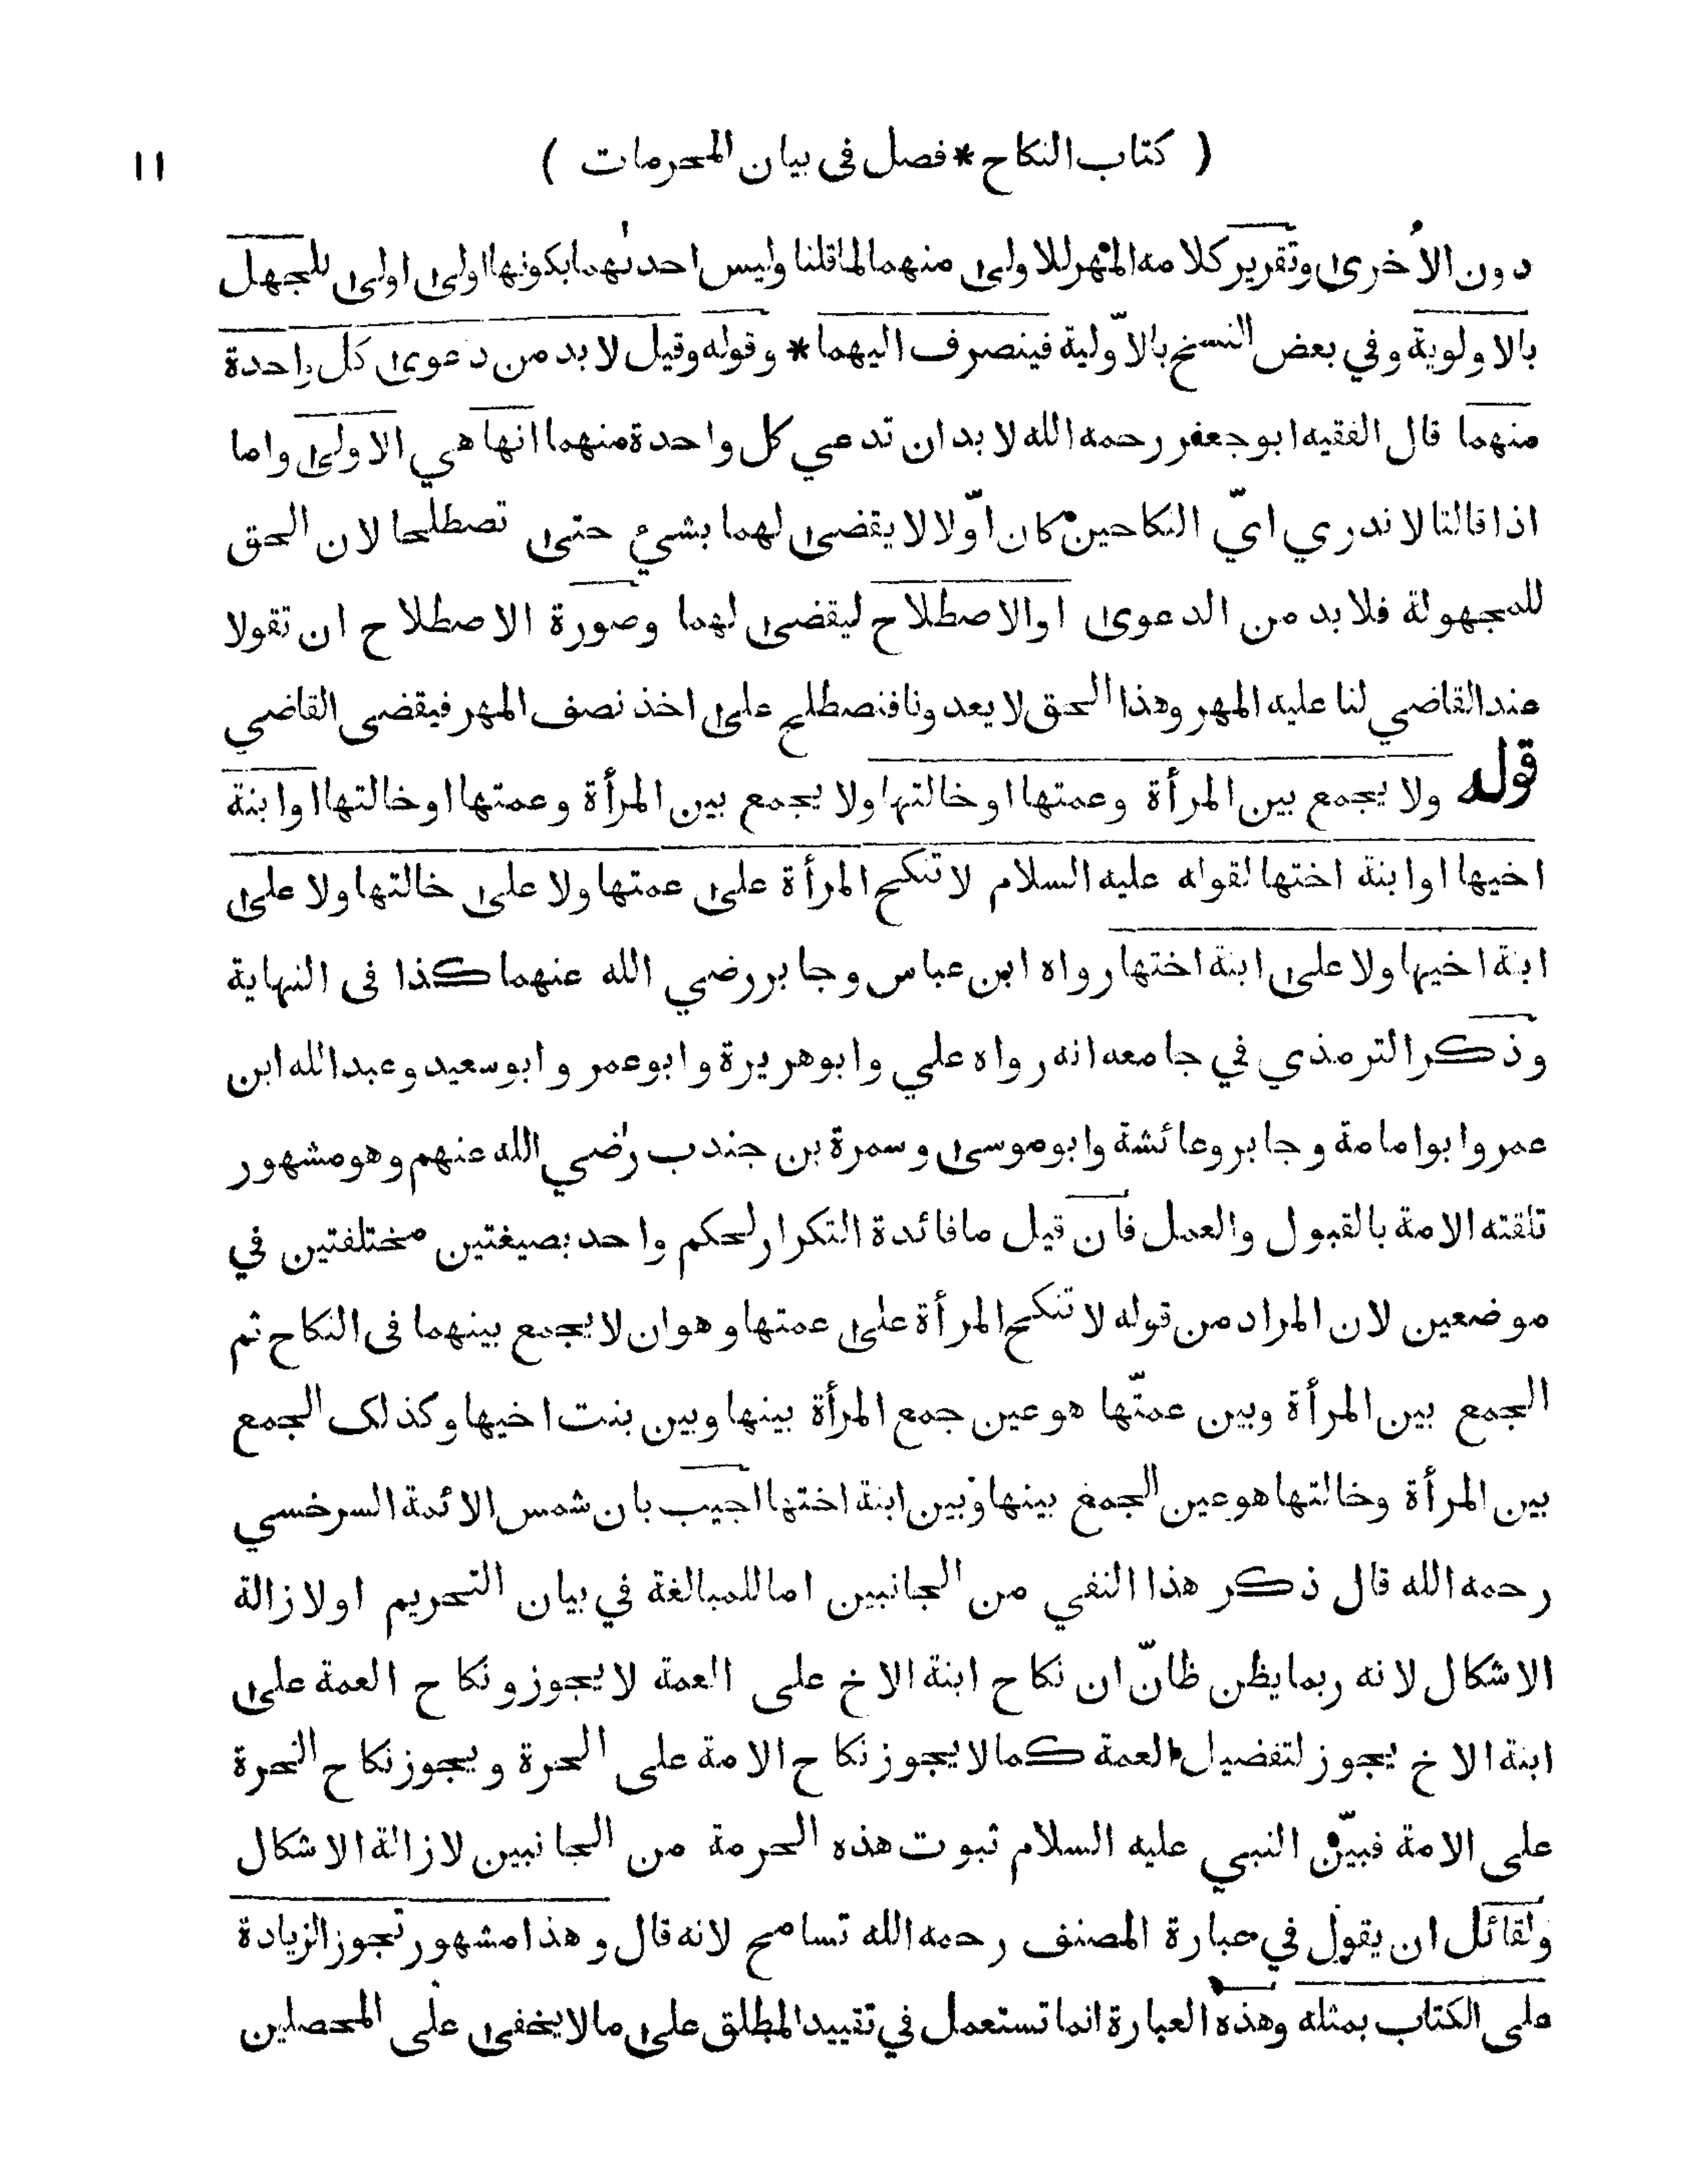 ( كتاب النكاح * فصل فى بيان المحرمات ) ١١
دون الأخرى وتقرير كلامه المهر للاولى منهما لما قلنا وليس احدىهما بكونها اولى اولى للجهل
بالاولوية وفي بعض النسخ بالاوّلية فينصرف اليهما * وقوله وقيل لا بد من دعوى كل واحدة
منهما قال الفقيه ابو جعفر رحمه الله لا بد ان تدعي كل واحدة منهما انها هي الاولى واما
اذا قالتا لا ندري ايّ النكاحين كان اوّلا لا يقضى لهما بشيء حتى تصطلحا لان الحق
للمجهولة فلا بد من الدعوى او الاصطلاح ليقضى لهما وصورة الاصطلاح ان تقولا
عند القاضي لنا عليه المهر وهذا الحق لا يعدونا فنصطلح على اخذ نصف المهر فيقضى القاضي
قوله ولا يجمع بين المرأة وعمتها او خالتها ولا يجمع بين المرأة وعمتها او خالتها او ابنة
اخيها او ابنة اختها لقوله عليه السلام لا تنكح المرأة على عمتها ولا على خالتها ولا على
ابنة اخيها ولا على ابنة اختها رواه ابن عباس وجابر رضي الله عنهما كذا فى النهاية
وذكر الترمذي في جامعه انه رواه علي وابو هريرة وابو عمر وابو سعيد وعبد الله ابن
عمر وابو امامة وجابر وعائشة وابو موسى وسمرة بن جندب رضي الله عنهم وهو مشهور
تلقته الامة بالقبول والعمل فان قيل ما فائدة التكرار لحكم واحد بصيغتين مختلفتين في
موضعين لان المراد من قوله لا تنكح المرأة على عمتها وهو ان لا يجمع بينهما فى النكاح ثم
الجمع بين المرأة وبين عمتّها هو عين جمع المرأة بينها وبين بنت اخيها وكذلك الجمع
بين المرأة وخالتها هو عين الجمع بينها وبين ابنة اختها اجيب بان شمس الائمة السرخسي
رحمه الله قال ذكر هذا النفي من الجانبين اما للمبالغة في بيان التحريم او لازالة
الاشكال لانه ربما يظن ظانّ ان نكاح ابنة الاخ على العمة لا يجوز ونكاح العمة على
ابنة الاخ يجوز لتفضيل العمة كما لا يجوز نكاح الامة على الحرة ويجوز نكاح الحرة
على الامة فبيّن النبي عليه السلام ثبوت هذه الحرمة من الجانبين لازالة الاشكال
ولقائل ان يقول في عبارة المصنف رحمه الله تسامح لانه قال وهذا مشهور تجوز الزيادة
على الكتاب بمثله وهذه العبارة انما تستعمل في تقييد المطلق على ما لا يخفى على المحصلين